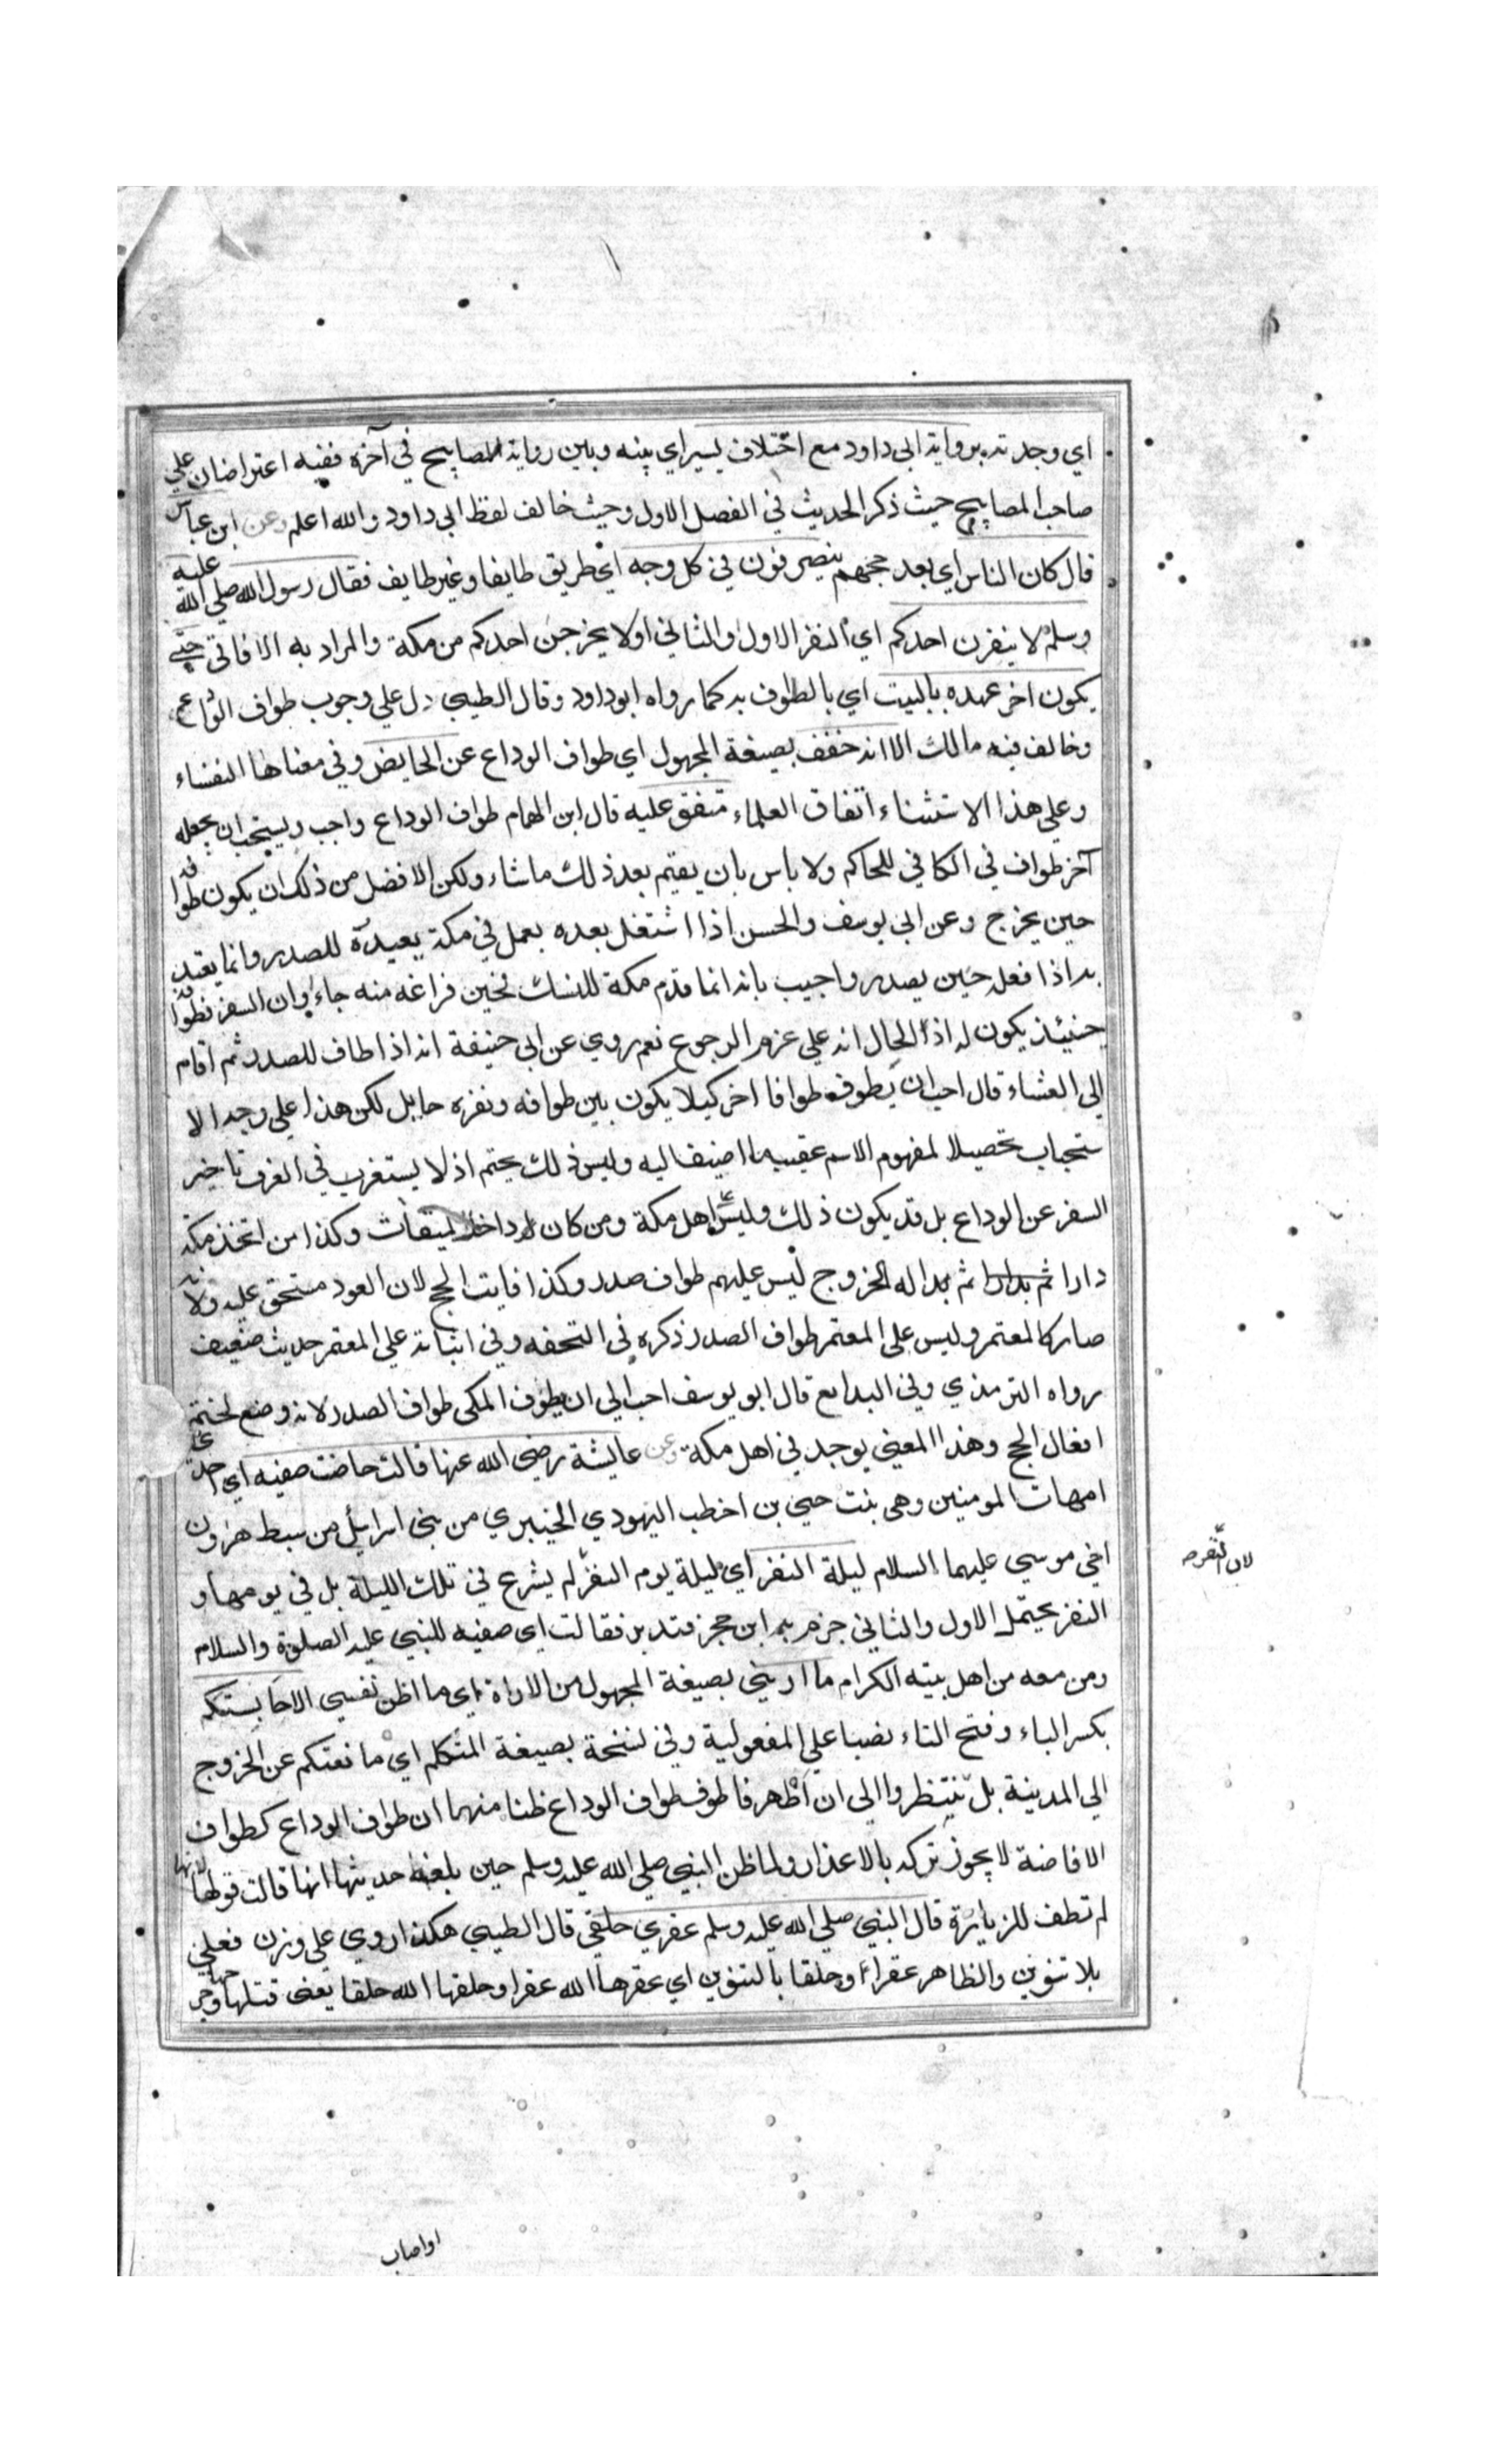 اي وجدته برواية ابي داود مع اختلاف يسير اي بينه وبين رواية المصابيح في آخره ففيه اعتراضان علي
صاحب المصابيح حيث ذكر الحديث في الفصل الاول وحيث خالف لفظ ابي داود والله اعلم وعن ابن عباس
قال كان الناس اي بعد حجهم ينصرفون في كل وجه اي طريق طايفا وغير طايف فقال رسول الله صلي الله عليه
وسلم لا ينفرن احدكم اي النفر الاول والثاني او لا يخرجن احدكم من مكة والمراد به الافاقي حتي
يكون اخر عهده بالبيت اي بالطواف به كما رواه ابو داود وقال الطيبي دل علي وجوب طواف الوداع
وخالف فيه مالك الا انه خفف بصيغة المجهول اي طواف الوداع عن الحايض وفي معناها النفساء
وعلي هذا الاستثناء اتفاق العلماء متفق عليه قال ابن الهمام طواف الوداع واجب ويستحب ان يجعله
آخر طواف في الكافي للحاكم ولا باس بان يقيم بعد ذلك ما شاء ولكن الافضل من ذلك ان يكون طوافه
حين يخرج وعن ابي يوسف والحسن اذا اشتغل بعده بعمل في مكة يعيده للصدر وانما يعتد
به اذا فعله حين يصدر واجيب بانه انما قدم مكة للنسك فحين فراغه منه جاء اوان السفر فطوافه
حينئذ يكون له اذ الحال انه علي عزم الرجوع نعم روي عن ابي حنيفة انه اذا طاف للصدر ثم اقام
الي العشاء قال احب ان يطوف طوافا اخر كيلا يكون بين طوافه ونفره حايل لكن هذا علي وجه الا
ستحباب تحصيلا لمفهوم الاسم عقيب ما اضيف اليه وليس ذلك بحتم اذ لا يستغرب في العرف تاخير
السفر عن الوداع بل قد يكون ذلك وليس علي اهل مكة ومن كان داخل الميقات وكذا من اتخذ مكة
دارا ثم بدا له الخروج ليس عليهم طواف صدر وكذا فايت الحج لان العود مستحق عليه ولانه
صار كالمعتمر وليس علي المعتمر طواف الصدر ذكره في التحفه وفي اثباته علي المعتمر حديث ضعيف
رواه الترمذي وفي البدايع قال ابو يوسف احب الي ان يطوف المكي طواف الصدر لانه وضع لختم
افعال الحج وهذا المعني يوجد في اهل مكة وعن عايشة رضي الله عنها قالت حاضت صفيه اي احدي
امهات المومنين وهي بنت حيي بن اخطب اليهودي الخيبري من بني اسرايل من سبط هرون
اخي موسي عليهما السلام ليلة النفر اي ليلة يوم النفر لم يشرع في تلك الليلة بل في يومها و
لان النفر
النفر يحتمل الاول والثاني جزم به ابن حجر فتدبر فقالت اي صفيه للنبي عليه الصلوة والسلام
ومن معه من اهل بيته الكرام ما اريني بصيغة المجهول من الاراة اي ما اظن نفسي الا حابستكم
بكسر الباء وفتح التاء نصبا علي المفعولية وفي نسخة بصيغة المتكلم اي مانعتكم عن الخروج
الي المدينة بل تنتظروا الي ان اطهر فاطوف طواف الوداع ظنا منها ان طواف الوداع كطواف
الافاضة لا يجوز تركه بالاعذار ولما ظن النبي صلي الله عليه وسلم حين بلغه حديثها انها قالت قولها لانها
لم تطف للزيارة قال النبي صلي الله عليه وسلم عقري حلقي قال الطيبي هكذا روي علي وزن فعلي
بلا تنوين والظاهر عقراً وحلقا بالتنوين اي عقرها الله عقرا وحلقها الله حلقا يعني قتلها وجرحها
او اصاب